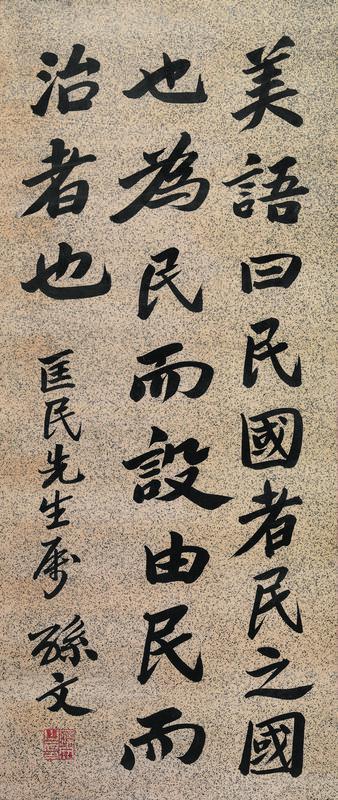 美語曰民國者民之國
也為民而設由民而
治者也
匡民先生属
孫文